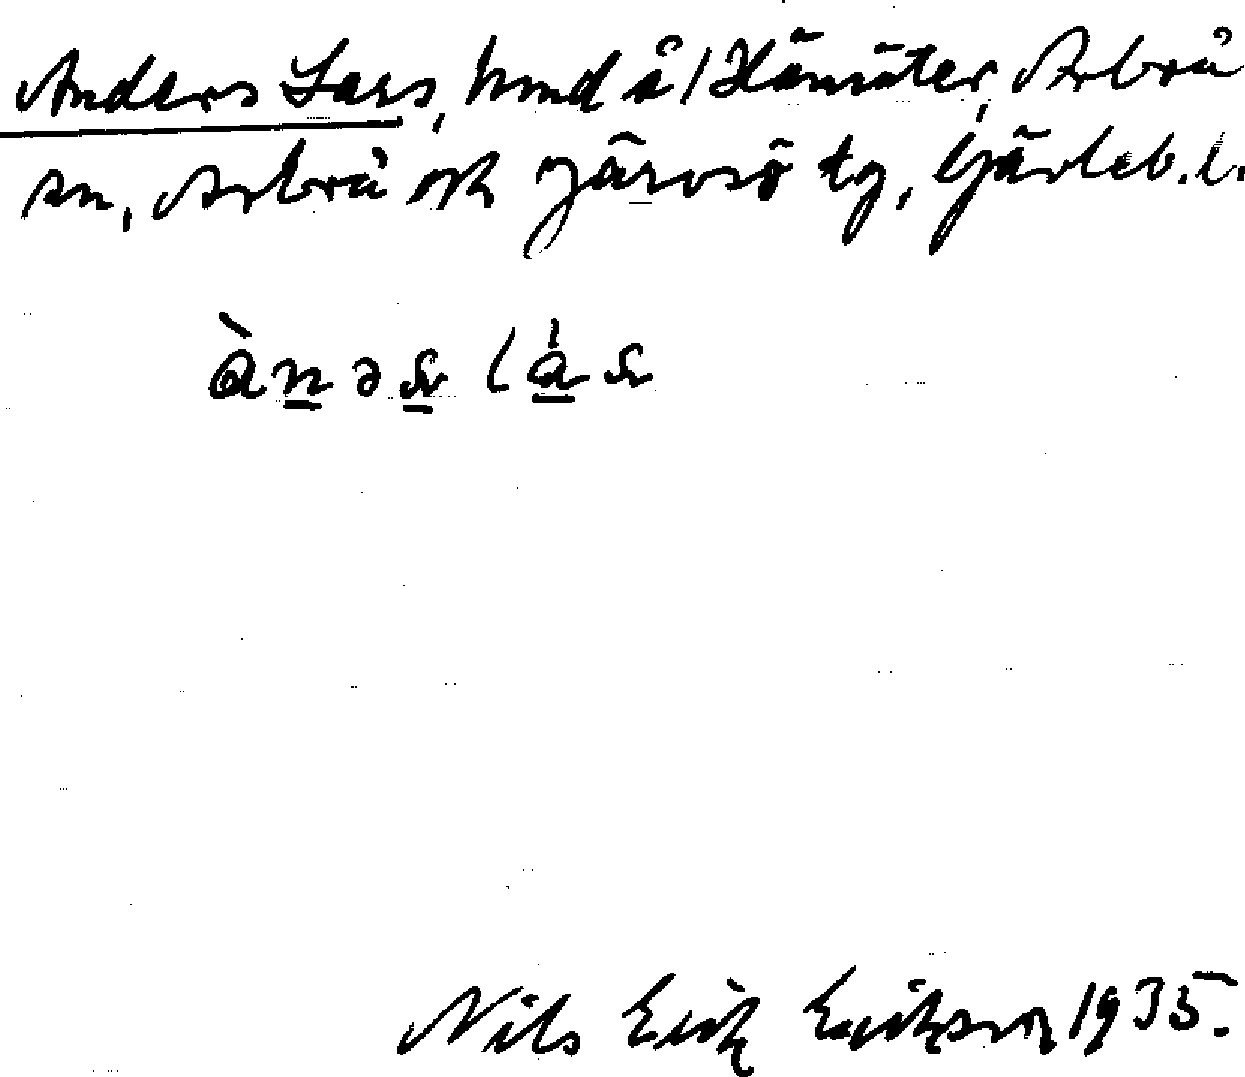 Anders Lars, hmd å / Hänsäter, Arbrå
sn, Arbrå ock Järvsö tg, Gävleb. l.
ànəs lás
Nils Erik Erikson 1935.